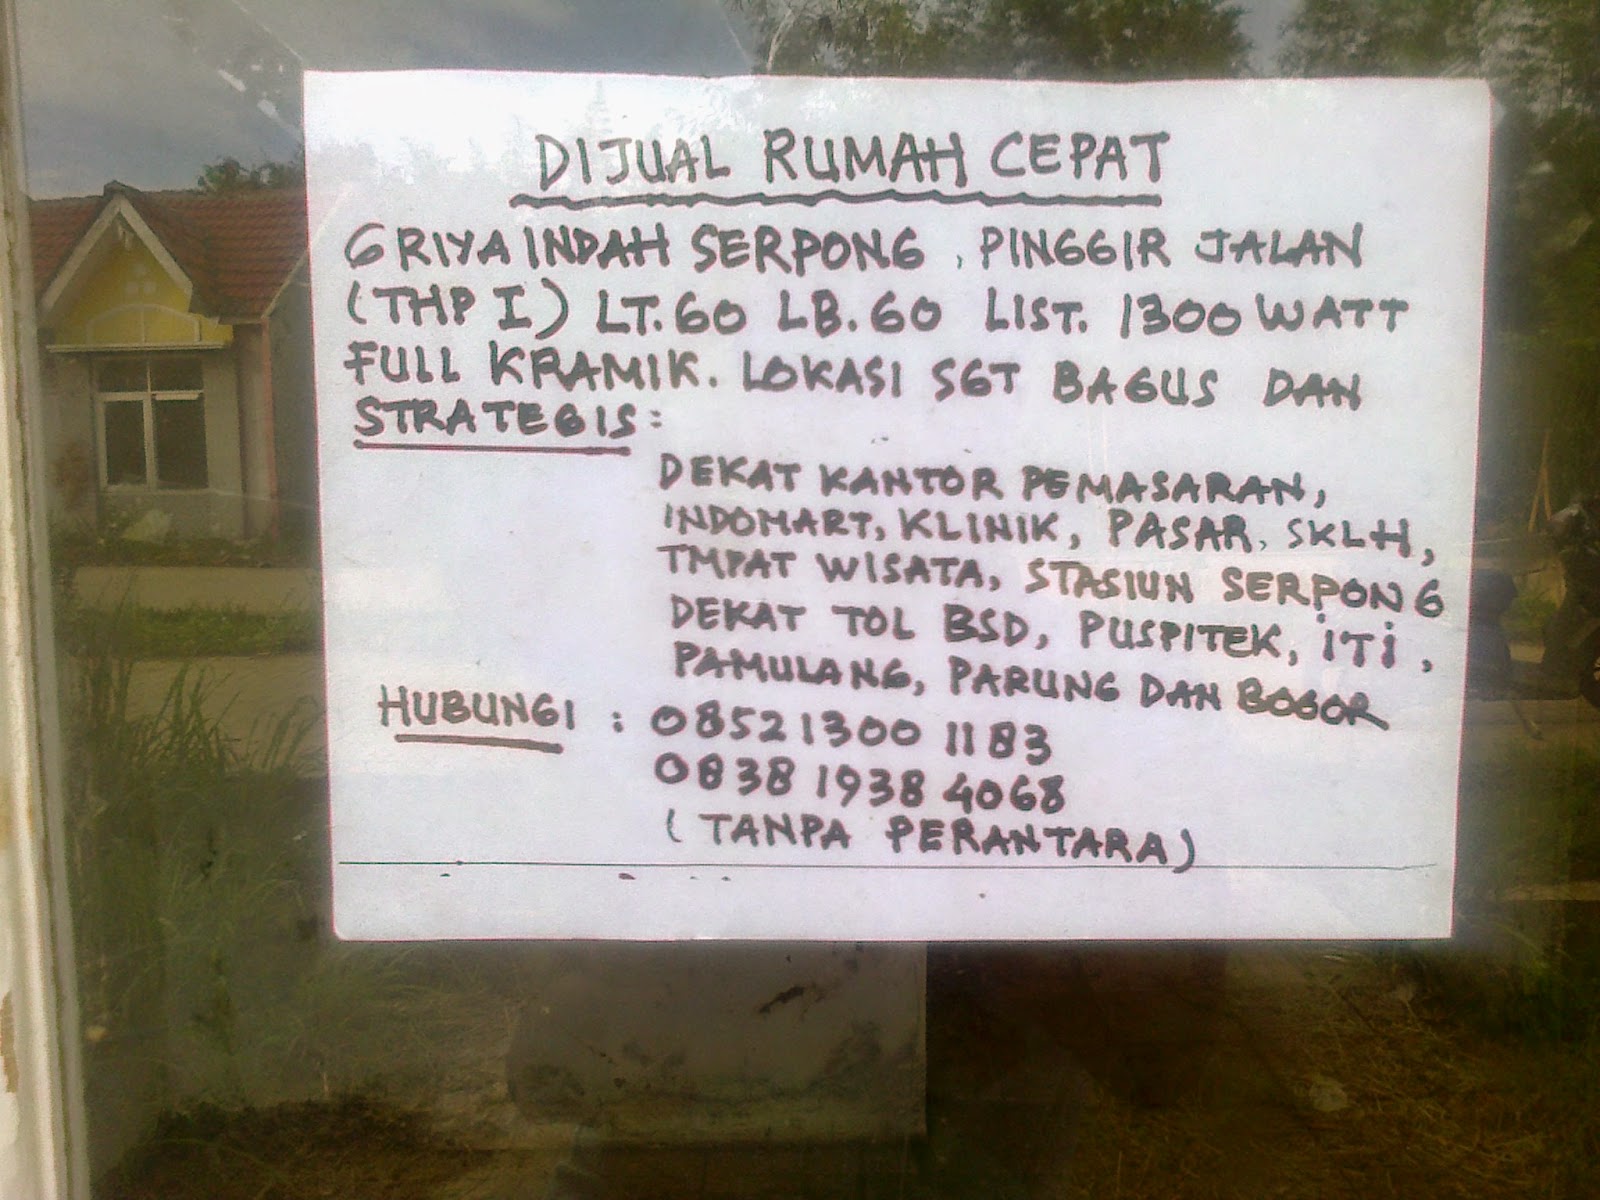 DIJUAL RUMAH CEPAT
GRIYA INDAH SERPONG, PINGGIR JALAN
(THP I) LT.60 LB.60 LIST. 1300 WATT
FULL KRAMIK. LOKASI SGT BAGUS DAN
STRATEGIS:
DEKAT KANTOR PEMASARAN,
INDOMART, KLINIK, PASAR, SKLH,
TMPAT WISATA, STASIUN SERPONG
DEKAT TOL BSD, PUSPITEK, iTi,
PAMULANG, PARUNG DAN BOGOR
HUBUNGI : 0852 1300 1183
0838 1938 4068
(TANPA PERANTARA)